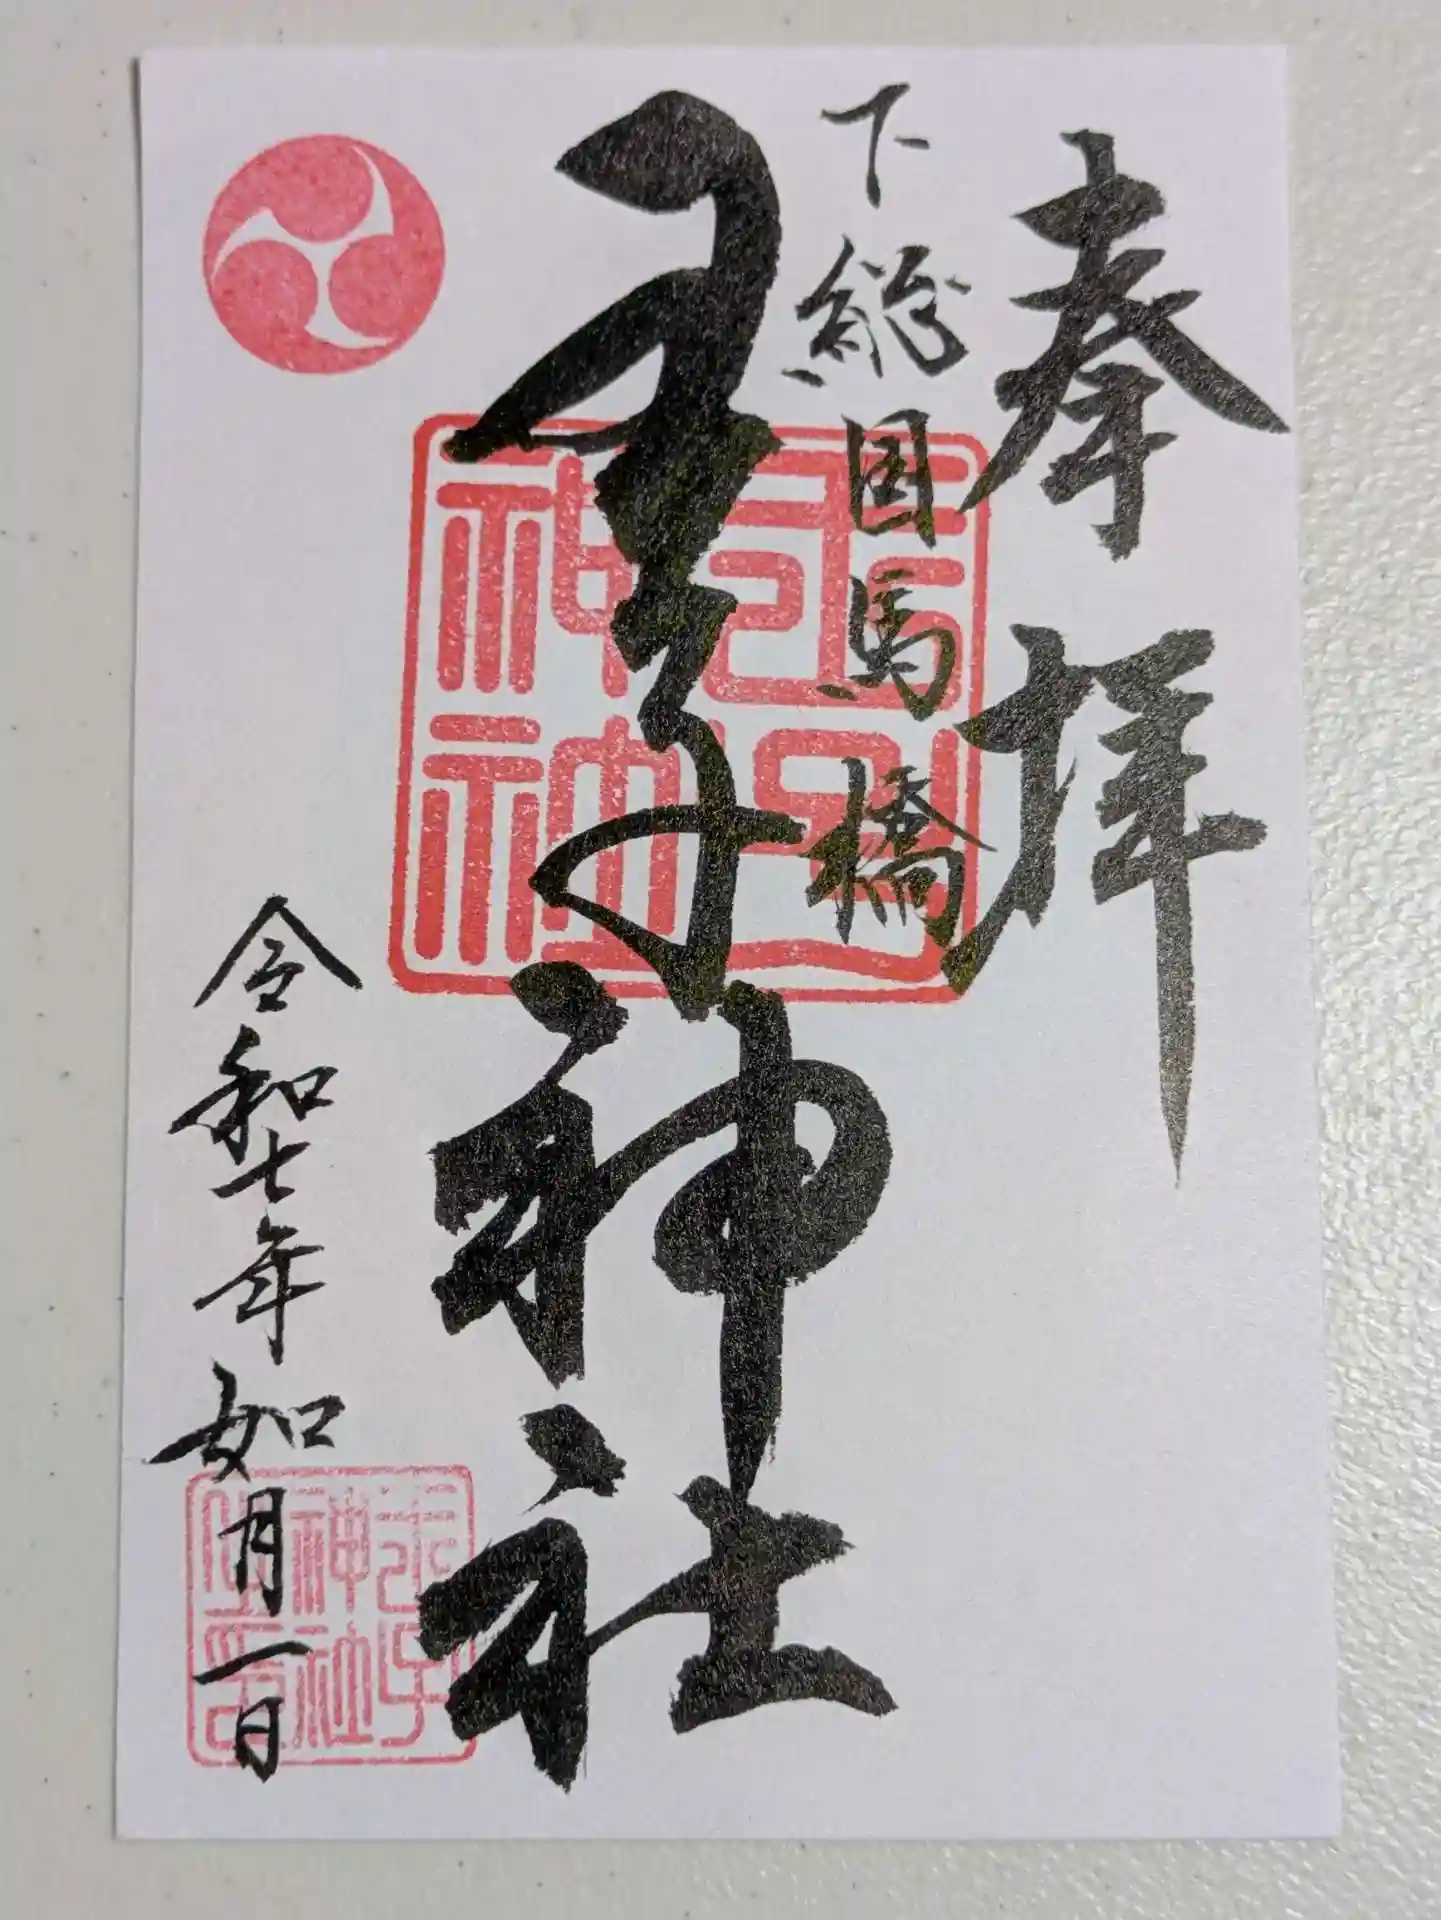 奉拝
下総国馬橋
王子神社
令和七年如月一日
神社
神社